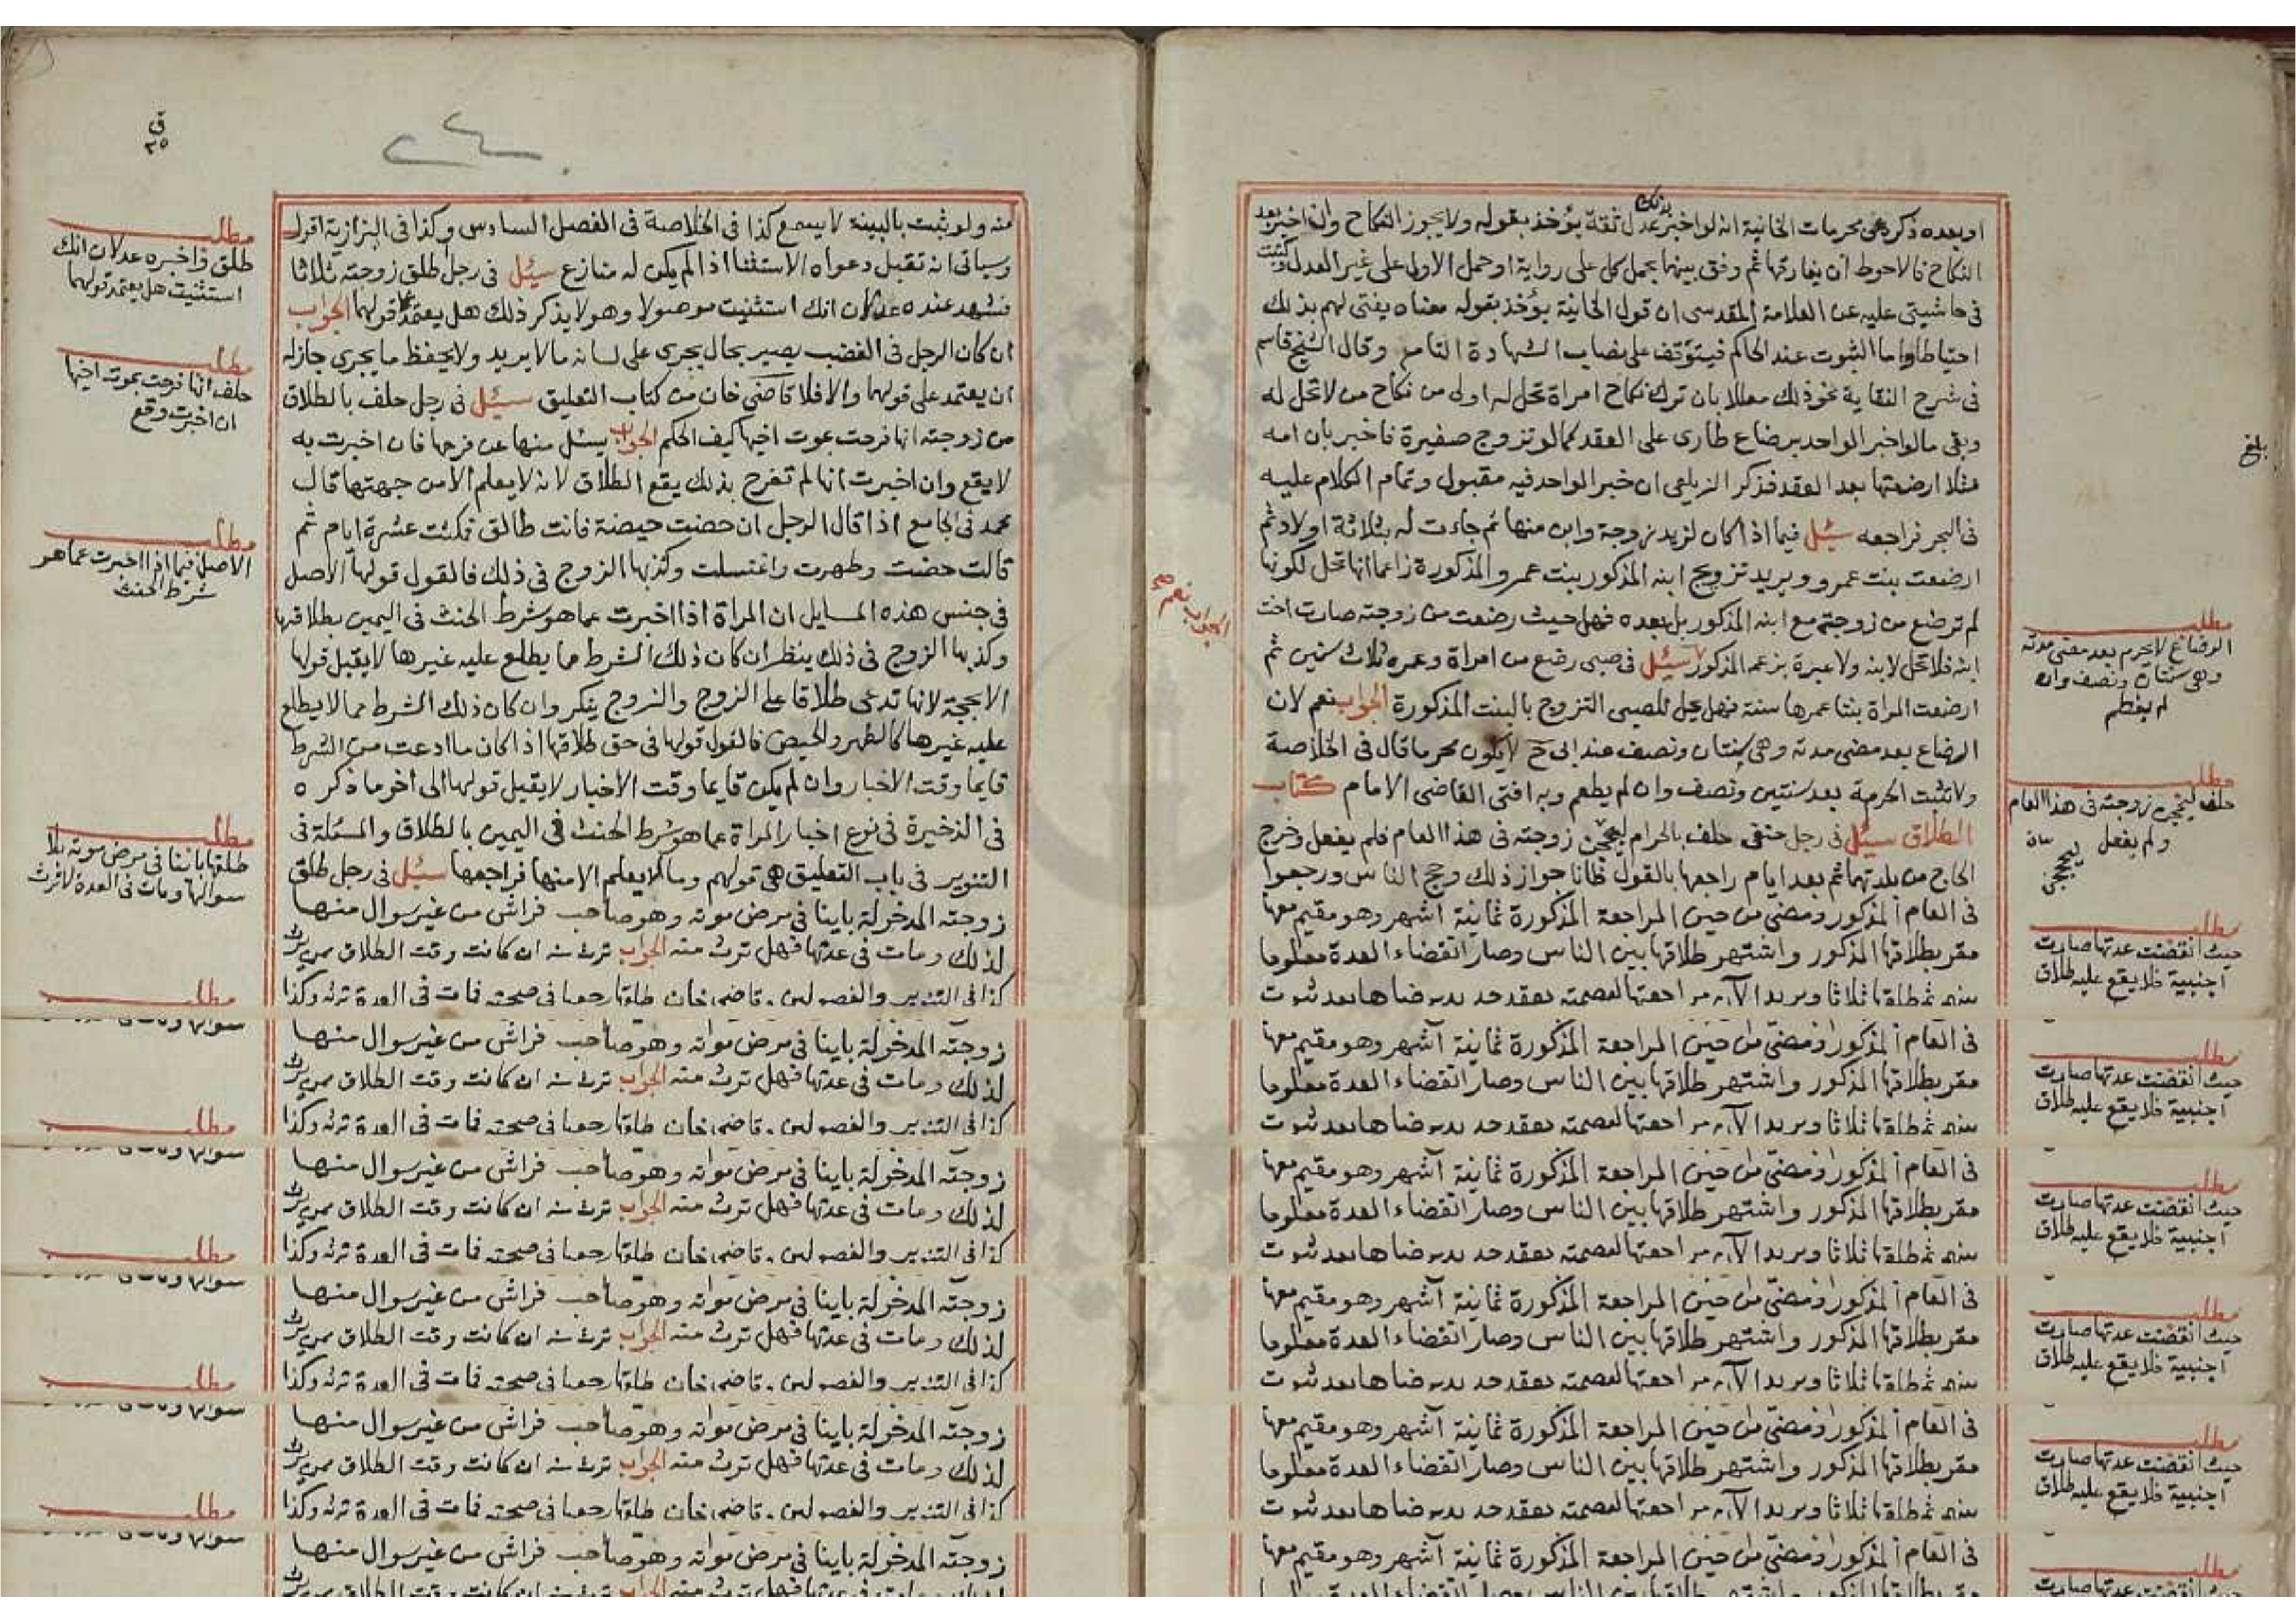 او بعده ذكر عن محرمات الخانية انه لو اخبر عدل ثقة يؤخذ بقوله ولا يجوز النكاح وان اخبر بعد
بذلك
النكاح فالاحوط ان يفارقها ثم وفق بينهما بحمل كل على رواية او حمل الاول على غير العدل وكتبت
فى حاشيتى عليه عن العلامة المقدسى ان قول الخانية يؤخذ بقوله معناه يفتى لهم بذلك
احتياطا واما الثبوت عند الحاكم فيتوقف على نصاب الشهادة التامع وقال الشيخ قاسم
فى شرح النقاية نحو ذلك معللا بان ترك نكاح امراة تحل له اولى من نكاح من لا تحل له
وبقى مالو اخبر الواحد برضاع طارى على العقد كما لو تزوج صغيرة فاخبر بان امه
مثلا ارضعتها بعد العقد فذكر الزيلعى ان خبر الواحد فيه مقبول وتمام الكلام عليه
فى البحر فراجعه سئل فيما اذا كان لزيد زوجة وابن منها ثم جاءت له بثلاثة اولاد ثم
ارضعت بنت عمرو ويريد تزويج ابنه المذكور بنت عمرو المذكورة زاعما انها تحل لكونها
لم ترضع من زوجته مع ابنه المذكور بل بعده فهل حيث رضعت من زوجته صارت اخت
ابنه فلا تحل لابنه ولا عبرة بزعمه المذكور سئل فى صبى رضع من امراة وعمره ثلاث سنين ثم
ارضعت المراة بنتا عمرها سنة فهل يحل للصبى التزوج بالبنت المذكورة الجواب نعم لان
الرضاع بعد مضى مدته وهى سنتان ونصف عند ابى ح لا يكون محرما قال فى الخلاصة
ولا تثبت الحرمة بعد سنتين ونصف وان لم يطعم وبه افتى القاضى الامام كتاب
الطلاق سئل فى رجل حنفى حلف بالحرام ليحججن زوجته فى هذا العام فلم يفعل وخرج
الحاج من بلدتهما ثم بعد ايام راجعها بالقول ظانا جواز ذلك وحج الناس ورجعوا
فى العام المذكور ومضى من حين المراجعة المذكورة ثمانية اشهر وهو مقيم معها
مقر بطلاقها المذكور واشتهر طلاقها بين الناس وصار انقضاء العدة معلوما
ثم طلقها ثلاثا ويريد الآن مراجعتها لعصمته بعقد جديد برضاها بعد ثبوت
فى العام المذكور ومضى من حين المراجعة المذكورة ثمانية اشهر وهو مقيم معها
مقر بطلاقها المذكور واشتهر طلاقها بين الناس وصار انقضاء العدة معلوما
ثم طلقها ثلاثا ويريد الآن مراجعتها لعصمته بعقد جديد برضاها بعد ثبوت
فى العام المذكور ومضى من حين المراجعة المذكورة ثمانية اشهر وهو مقيم معها
مقر بطلاقها المذكور واشتهر طلاقها بين الناس وصار انقضاء العدة معلوما
ثم طلقها ثلاثا ويريد الآن مراجعتها لعصمته بعقد جديد برضاها بعد ثبوت
فى العام المذكور ومضى من حين المراجعة المذكورة ثمانية اشهر وهو مقيم معها
مقر بطلاقها المذكور واشتهر طلاقها بين الناس وصار انقضاء العدة معلوما
ثم طلقها ثلاثا ويريد الآن مراجعتها لعصمته بعقد جديد برضاها بعد ثبوت
فى العام المذكور ومضى من حين المراجعة المذكورة ثمانية اشهر وهو مقيم معها
مقر بطلاقها المذكور واشتهر طلاقها بين الناس وصار انقضاء العدة معلوما
ثم طلقها ثلاثا ويريد الآن مراجعتها لعصمته بعقد جديد برضاها بعد ثبوت
فى العام المذكور ومضى من حين المراجعة المذكورة ثمانية اشهر وهو مقيم معها
بلغ
الجواب نعم صح
مطلب
الرضاع لا يحرم بعد مضى مدته
وهى سنتان ونصف وان
لم يفطم
مطلب
حلف ليحججن زوجته فى هذا العام
ولم يفعل
ليحججن
مطلب
حيث انقضت عدتها صارت
اجنبية فلا يقع عليه طلاق
مطلب
حيث انقضت عدتها صارت
اجنبية فلا يقع عليه طلاق
مطلب
حيث انقضت عدتها صارت
اجنبية فلا يقع عليه طلاق
مطلب
حيث انقضت عدتها صارت
اجنبية فلا يقع عليه طلاق
مطلب
حيث انقضت عدتها صارت
اجنبية فلا يقع عليه طلاق
مطلب
حيث انقضت عدتها صارت
٢٤
منه ولو ثبت بالبينة لا يسمع كذا فى الخلاصة فى الفصل السادس وكذا فى البزازية اقول
وسياتى انه تقبل دعواه الاستثنا اذا لم يكن له منازع سئل فى رجل طلق زوجته ثلاثا
فشهد عنده عدلان انك استثنيت موصولا وهو لا يذكر ذلك هل يعتمد قولهما الجواب
ان كان الرجل فى الغضب يصير بحال يجرى على لسانه ما لا يريد ولا يحفظ ما يجرى جاز له
ان يعتمد على قولهما والا فلا قاضى خان من كتاب التعليق سئل فى رجل حلف بالطلاق
من زوجته انها فرحت بموت اخيها كيف الحكم الجواب يسئل منها عن فرحها فان اخبرت به
لا يقع وان اخبرت انها لم تفرح بذلك يقع الطلاق لانه لا يعلم الا من جهتها قال
محمد فى الجامع اذا قال الرجل ان حضت حيضة فانت طالق فمكثت عشرة ايام ثم
قالت حضت وطهرت واغتسلت وكذبها الزوج فى ذلك فالقول قولها الاصل
فى جنس هذه المسايل ان المراة اذا اخبرت عما هو شرط الحنث فى اليمين بطلاقها
وكذبها الزوج فى ذلك ينظر ان كان ذلك الشرط مما يطلع عليه غيرها لا يقبل قولها
الا بحجة لانها تدعى طلاقا على الزوج والزوج ينكر وان كان ذلك الشرط مما لا يطلع
عليه غيرها كالطهر والحيض فالقول قولها فى حق طلاقها اذا كان ما ادعت من الشرط
قايما وقت الاخبار وان لم يكن قايما وقت الاخبار لا يقبل قولها الى اخر ما ذكره
فى الذخيرة فى نوع اخبار المراة عما هو شرط الحنث فى اليمين بالطلاق والمسئلة فى
التنوير فى باب التعليق هى قولهم وما لا يعلم الا منها فراجعها سئل فى رجل طلق
زوجته المدخولة باينا فى مرض موته وهو صاحب فراش من غير سوال منها
لذلك ومات فى عدتها فهل ترث منه الجواب ترث منه ان كانت وقت الطلاق ممن يرث
كذا فى التنوير والفصولين قاضى خان طلقها رجعيا فى صحته فمات فى العدة ترثه وكذا
زوجته المدخولة باينا فى مرض موته وهو صاحب فراش من غير سوال منها
لذلك ومات فى عدتها فهل ترث منه الجواب ترث منه ان كانت وقت الطلاق ممن يرث
كذا فى التنوير والفصولين قاضى خان طلقها رجعيا فى صحته فمات فى العدة ترثه وكذا
زوجته المدخولة باينا فى مرض موته وهو صاحب فراش من غير سوال منها
لذلك ومات فى عدتها فهل ترث منه الجواب ترث منه ان كانت وقت الطلاق ممن يرث
كذا فى التنوير والفصولين قاضى خان طلقها رجعيا فى صحته فمات فى العدة ترثه وكذا
زوجته المدخولة باينا فى مرض موته وهو صاحب فراش من غير سوال منها
لذلك ومات فى عدتها فهل ترث منه الجواب ترث منه ان كانت وقت الطلاق ممن يرث
كذا فى التنوير والفصولين قاضى خان طلقها رجعيا فى صحته فمات فى العدة ترثه وكذا
زوجته المدخولة باينا فى مرض موته وهو صاحب فراش من غير سوال منها
لذلك ومات فى عدتها فهل ترث منه الجواب ترث منه ان كانت وقت الطلاق ممن يرث
كذا فى التنوير والفصولين قاضى خان طلقها رجعيا فى صحته فمات فى العدة ترثه وكذا
زوجته المدخولة باينا فى مرض موته وهو صاحب فراش من غير سوال منها
مطلب
طلق واخبره عدلان انك
استثنيت هل يعتمد قولهما
مطلب
حلف انها فرحت بموت اخيها
ان اخبرت وقع
مطلب
الاصل فيما اذا اخبرت عما هو
شرط الحنث
مطلب
طلقها باينا فى مرض موته بلا
سوالها ومات فى العدة لا ترث
مطلب
مطلب
مطلب
مطلب
مطلب